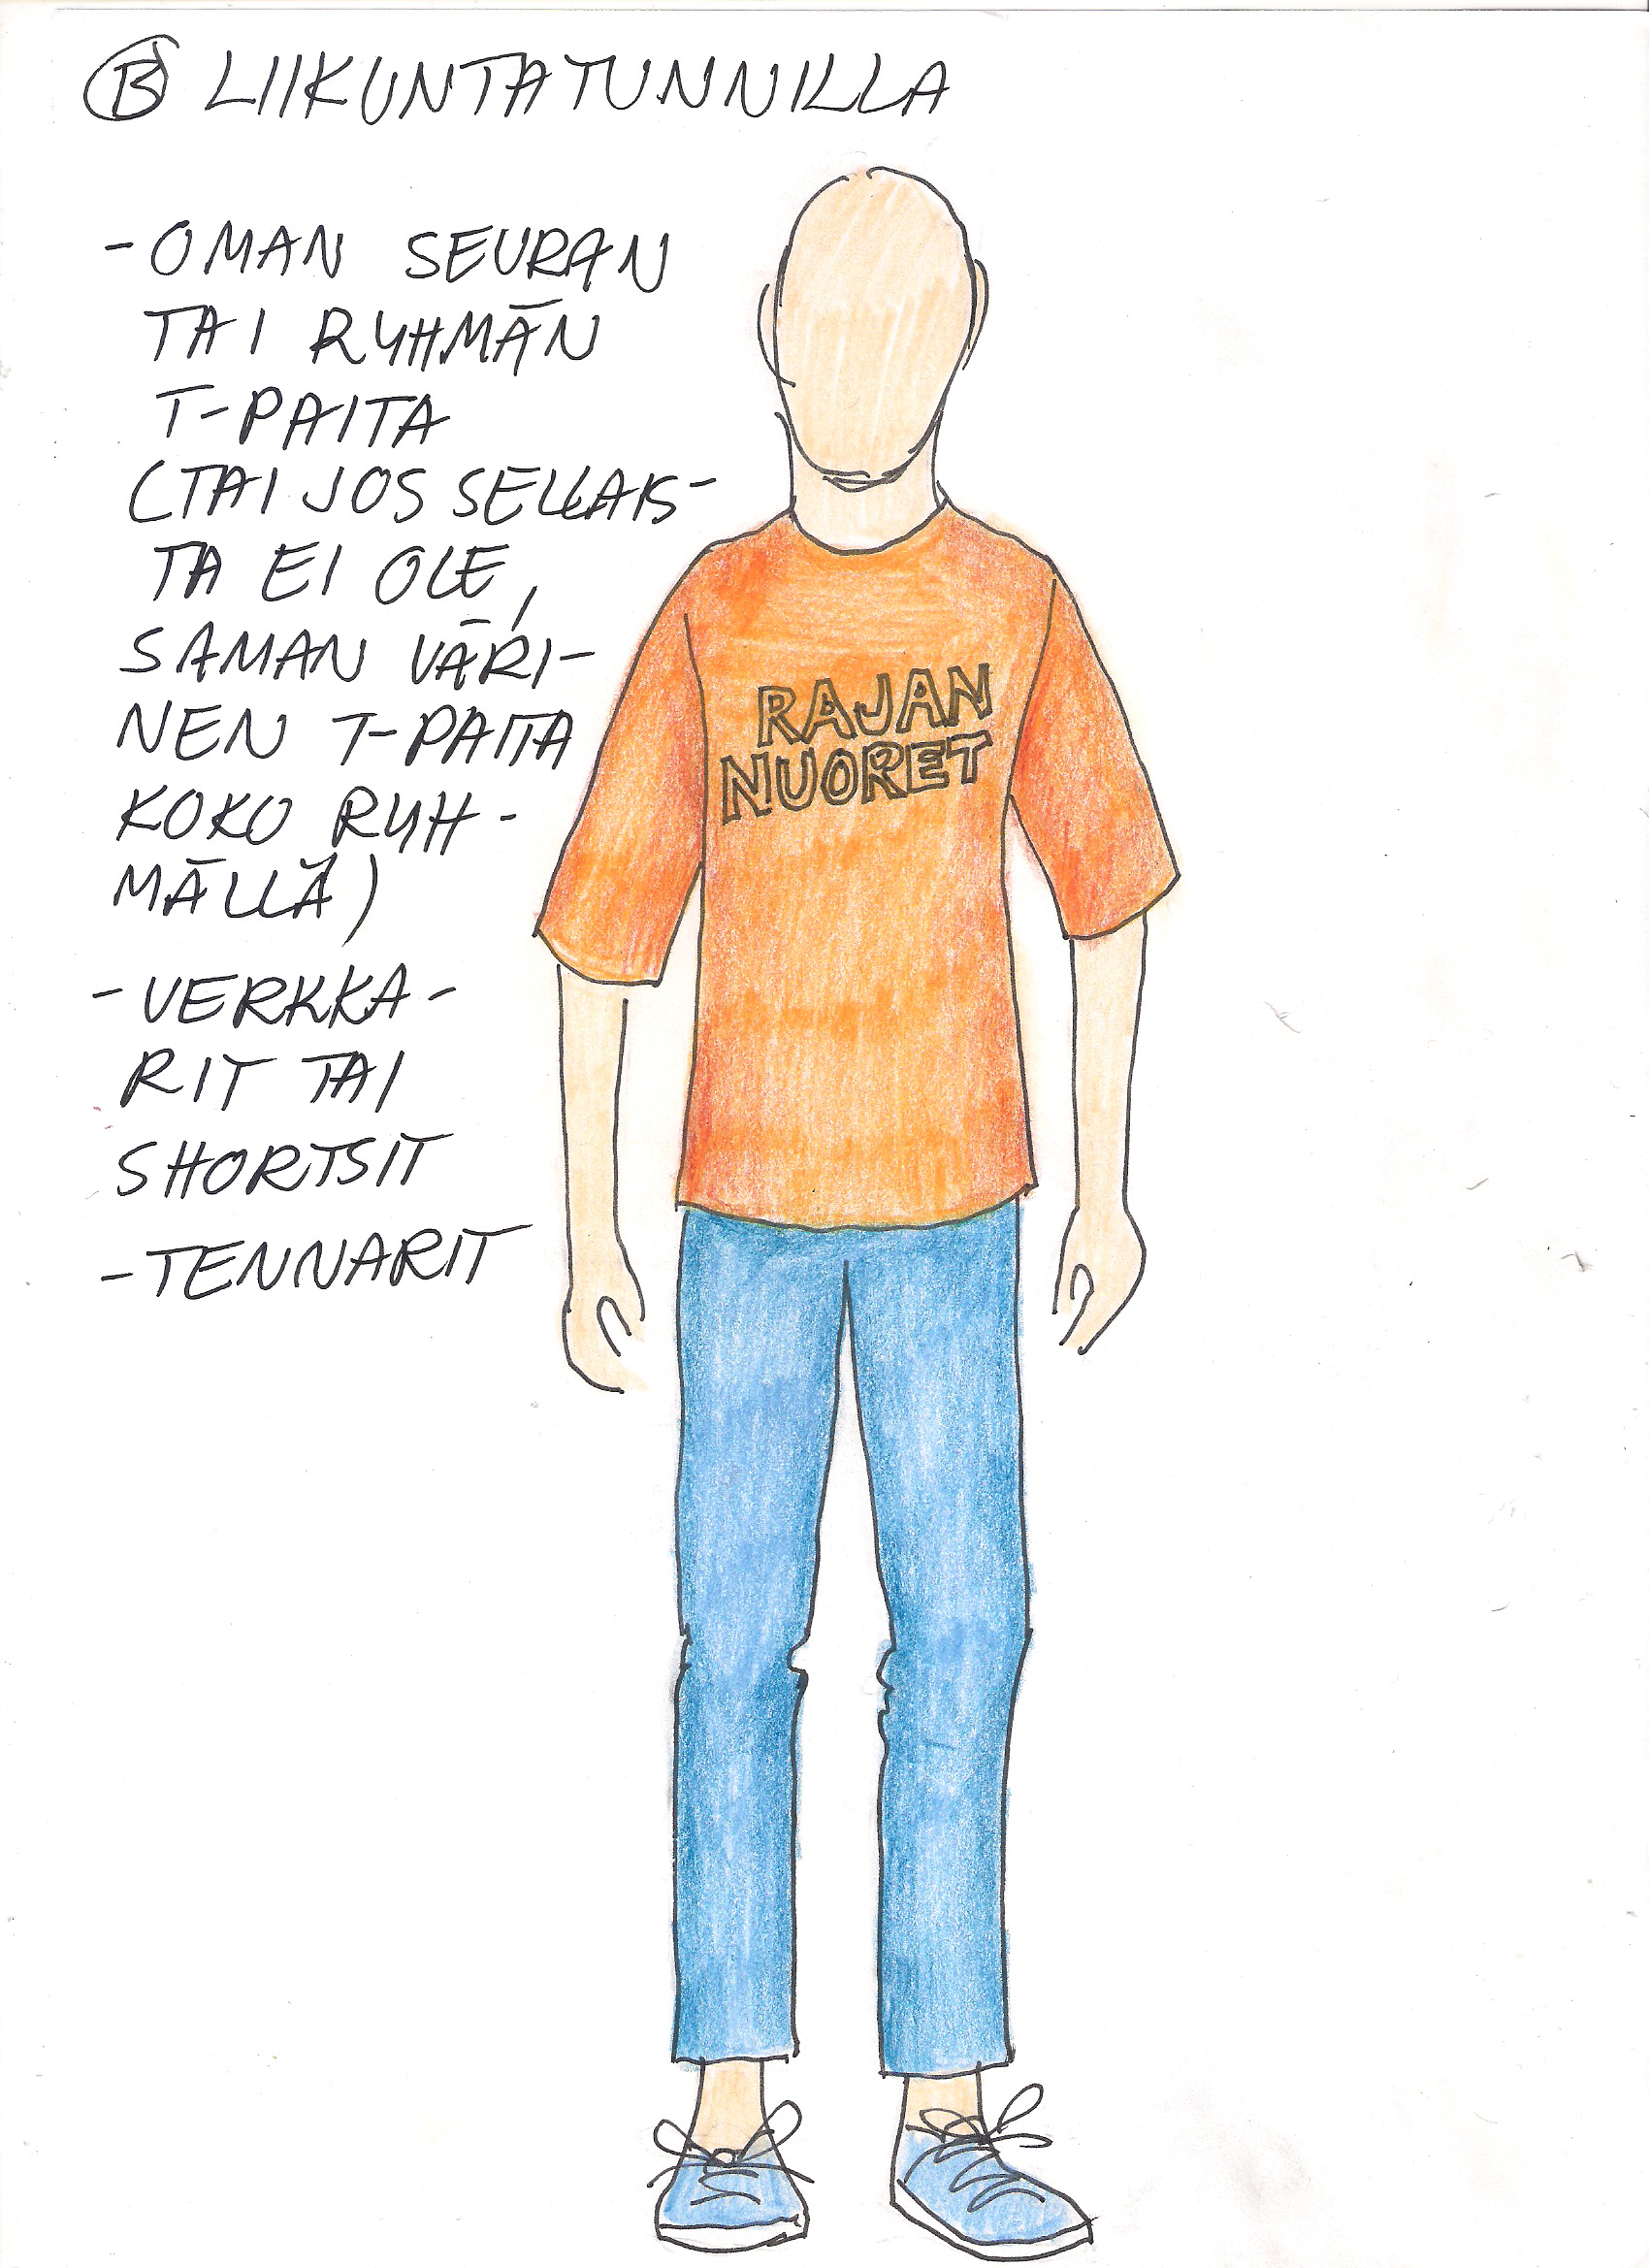 B LIIKUNTATUNNILLA
-OMAN SEURAN
TAI RYHMÄN
T-PAITA
(TAI JOS SELLAIS-
TA EI OLE,
SAMAN VÄRI-
NEN T-PAITA
KOKO RYH-
MÄLLÄ)
-VERKKA-
RIT TAI
SHORTSIT
-TENNARIT
RAJAN
NUORET